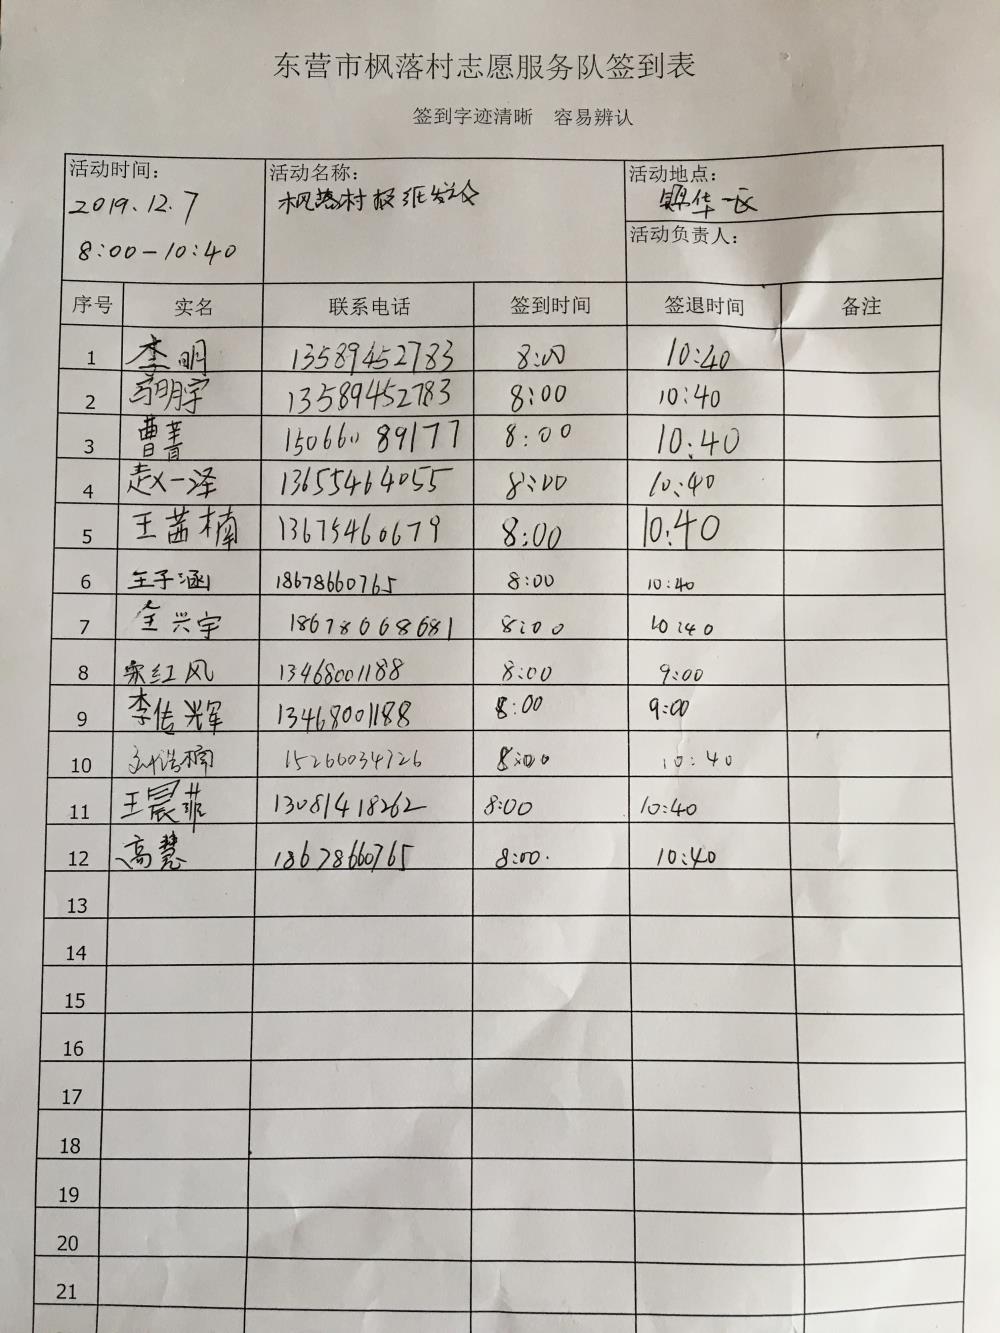 东营市枫落村志愿服务队签到表
签到字迹清晰 容易辨认
活动时间： 活动名称： 活动地点：
2019.12.7 枫落村报纸发放 锦华一区
8:00-10:40 活动负责人：
序号 实名 联系电话 签到时间 签退时间 备注
1 李明 13589452783 8:00 10:40
2 明宇 13589452783 8:00 10:40
3 曹菁 15066089177 8:00 10:40
4 赵一泽 13655464055 8:00 10:40
5 王茜楠 13675460679 8:00 10:40
6 王子涵 18678660765 8:00 10:40
7 全兴宇 18678068681 8:00 10:40
8 宋红风 13468001188 8:00 9:00
9 李传辉 13468001188 8:00 9:00
10 刘浩楠 15266034726 8:00 10:40
11 王晨菲 13081418262 8:00 10:40
12 高慧 18678660765 8:00 10:40
13
14
15
16
17
18
19
20
21